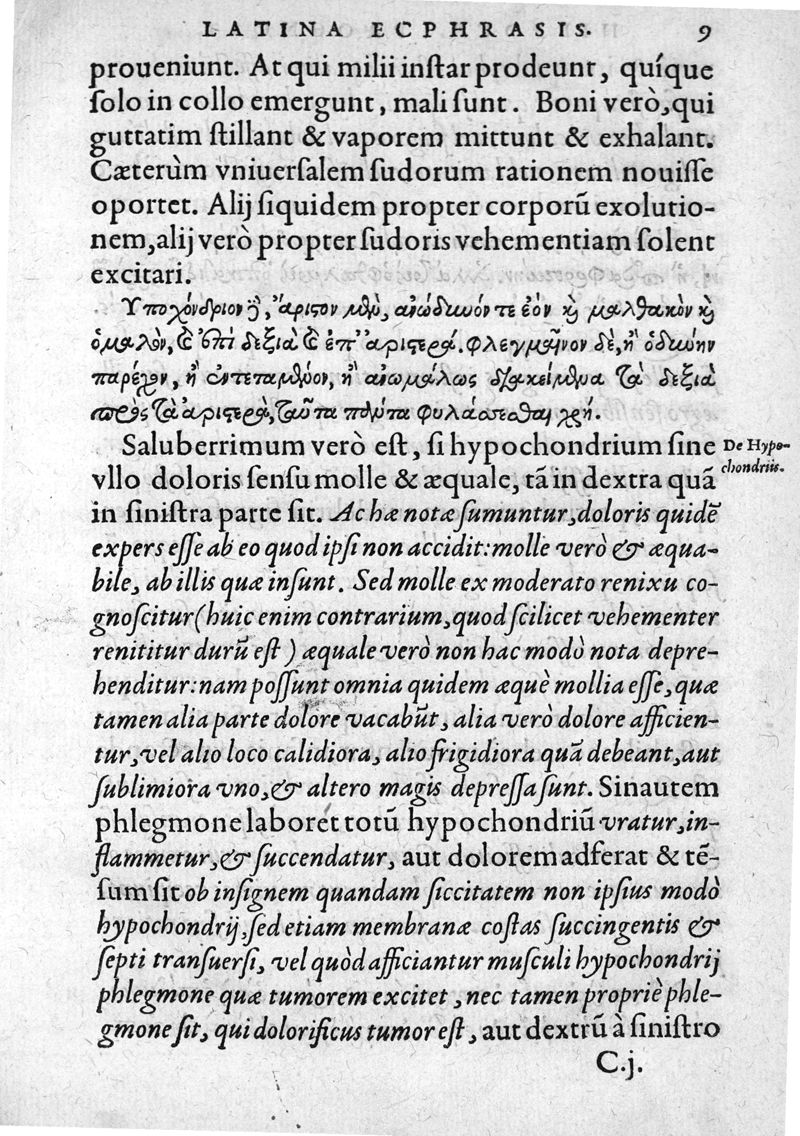 LATINA ECPHRASIS. 9
proueniunt. At qui milii inſtar prodeunt, quíque
ſolo in collo emergunt, mali ſunt. Boni verò, qui
guttatim ſtillant & vaporem mittunt & exhalant.
Cæterùm vniuerſalem ſudorum rationem nouiſſe
oportet. Alij ſiquidem propter corporū exolutio-
nem, alij verò propter ſudoris vehementiam ſolent
excitari.
Υποχόνδριον δὲ, ἄριστον μὲν, ἀνώδυνόν τε ἐὸν καὶ μαλθακὸν καὶ
ὁμαλὸν, καὶ ἐπὶ δεξιὰ καὶ ἐπ' ἀριστερά. φλεγμαῖνον δὲ, ἢ ὀδύνην
παρέχον, ἢ ἐντεταμένον, ἢ ἀνωμάλως διακείμενα τὰ δεξιὰ
πρὸς τὰ ἀριστερὰ, ταῦτα πάντα φυλάσσεσθαι χρή.
Saluberrimum verò eſt, ſi hypochondrium ſine
De Hypo-
chondriis.
vllo doloris ſenſu molle & æquale, tā in dextra quā
in ſiniſtra parte ſit. Ac hæ notæ ſumuntur, doloris quidē
expers eſſe ab eo quod ipſi non accidit: molle verò & æqua-
bile, ab illis quæ inſunt. Sed molle ex moderato renixu co-
gnoſcitur (huic enim contrarium, quod ſcilicet vehementer
renititur durū eſt) æquale verò non hac modò nota depre-
henditur: nam poſſunt omnia quidem æquè mollia eſſe, quæ
tamen alia parte dolore vacabūt, alia verò dolore afficien-
tur, vel alio loco calidiora, alio frigidiora quā debeant, aut
ſublimiora vno, & altero magis depreſſa ſunt. Sin autem
phlegmone laboret totū hypochondriū vratur, in-
flammetur, & ſuccendatur, aut dolorem adferat & tē-
ſum ſit ob inſignem quandam ſiccitatem non ipſius modò
hypochondrij, ſed etiam membranæ coſtas ſuccingentis &
ſepti transuerſi, vel quòd afficiantur muſculi hypochondrij
phlegmone quæ tumorem excitet, nec tamen propriè phle-
gmone ſit, qui dolorificus tumor eſt, aut dextrū à ſiniſtro
C.j.